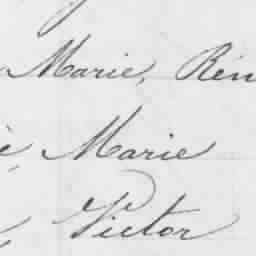 Marie, Rén
è Marie
Victor